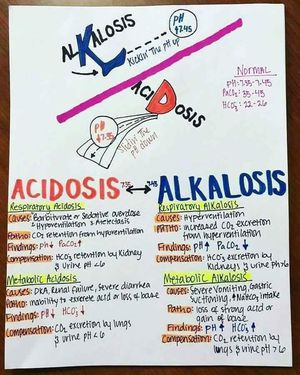 ALKALOSIS
PH
>7.45
Kickin' The pH up
NORMAL
PH - 7.35-7.45
PaCO₂: 35-45
HCO₃: 22-26
ACIDOSIS
PH
<7.35
Slidin' The
PH down
ACIDOSIS 7.35 ↔ 7.45 ALKALOSIS
Respiratory Acidosis
Causes: Barbiturate or Sedative overdose
Hypoventilation & Atelectasis
Patho: CO₂ retention from hypoventilation
Findings: pH↓ PaCO₂↑
Compensation: HCO₃ retention by Kidney
& urine pH <6
Metabolic Acidosis
Causes: DKA, Renal failure, Severe diarrhea
Patho: inability to excrete acid or loss of base
Findings: pH↓ HCO₃↓
Compensation: CO₂ excretion by lungs
& urine pH <6
Respiratory Alkalosis
Causes: Hyperventilation
Patho: increased CO₂ excretion
from hyperventilation
Findings: pH↑ PaCO₂↓
Compensation: HCO₃ excretion by
Kidneys & urine pH >6
Metabolic Alkalosis
Causes: Severe Vomiting, Gastric
Suctioning, ↑NaHCO₃ intake
Patho: loss of strong acid or
gain of base
Findings: pH↑ HCO₃↑
Compensation: CO₂ retention by
lungs & urine pH >6